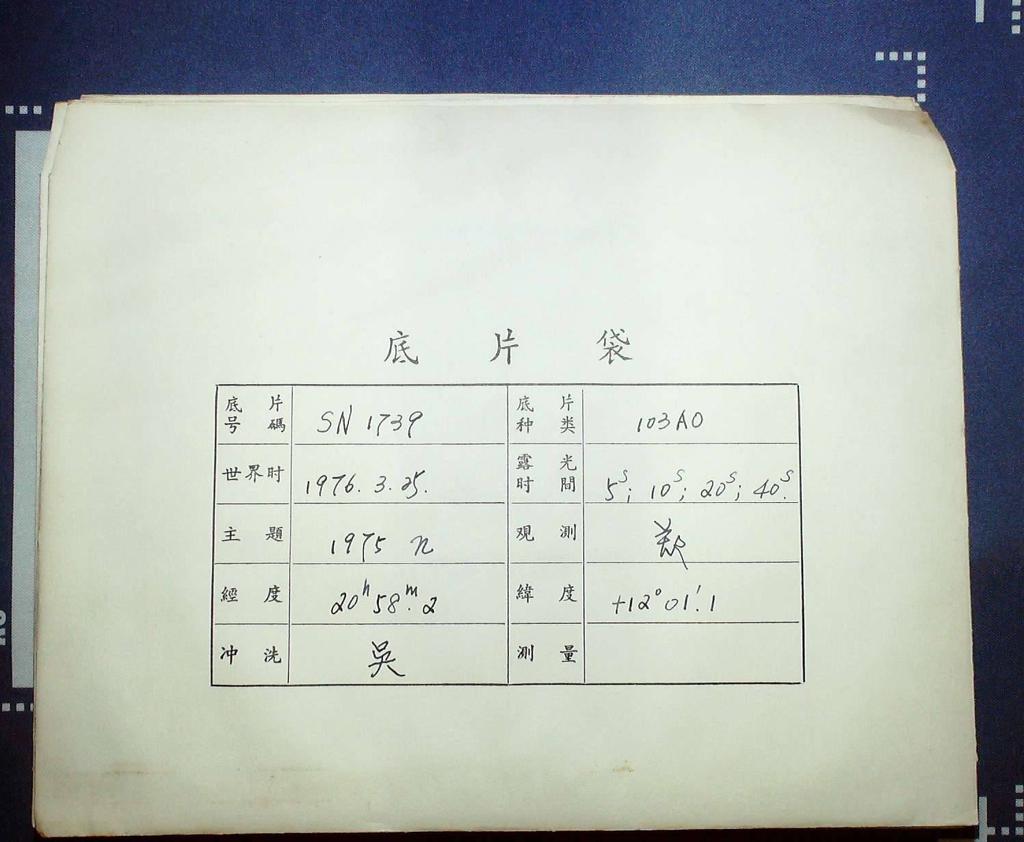 底片袋
底片号碼 SN 1739 底片种类 103AO
世界时 1976.3.25. 露光时間 5ˢ; 10ˢ; 20ˢ; 40ˢ.
主題 1975 n 观測
經度 20ʰ58ᵐ.2 緯度 +12°01′.1
冲洗 吳 測量